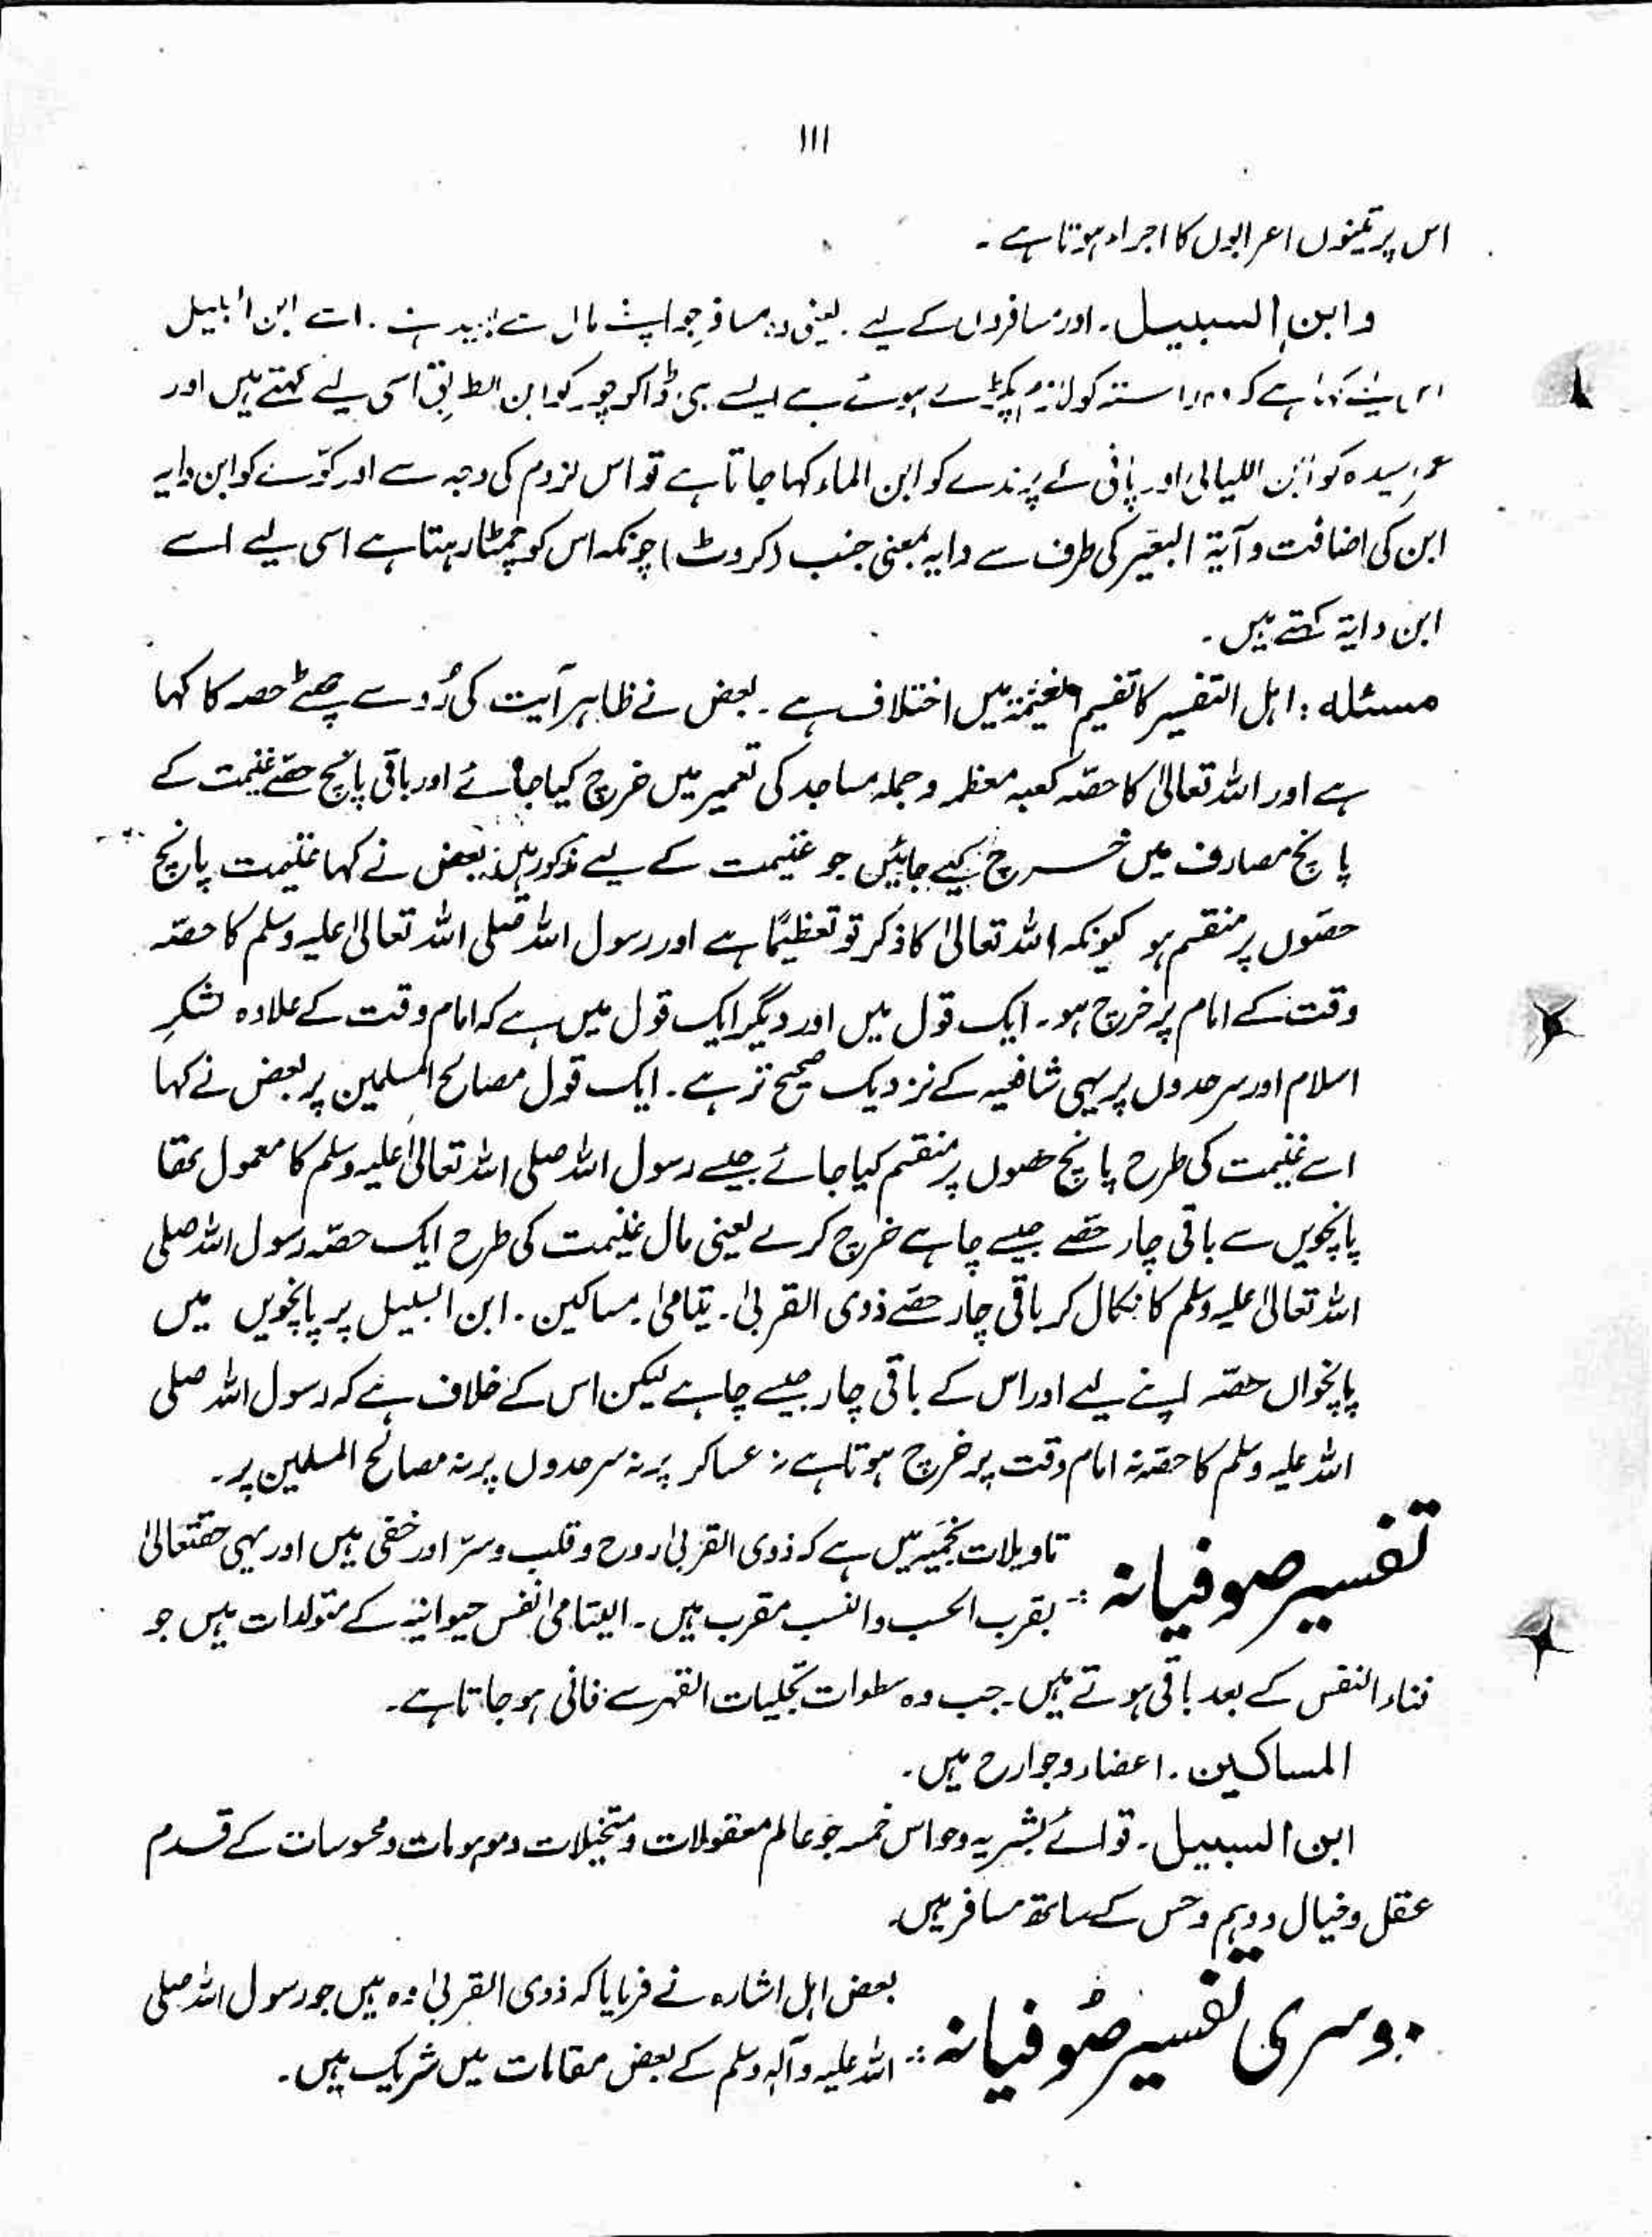 ۱۱۱
اس پر تینوں اعرابوں کا اجراء ہوتا ہے ۔
وابن السبیل ۔ اور مسافروں کے لیے ۔ یعنی وہ مسافر جو اپنے مال سے بعید ہے ۔ اسے ابن السبیل
اس لیے کہا ہے کہ وہ راستہ کو لازم پکڑے ہوئے ہے ایسے ہی ڈاکو چور کو ابن الطریق اسی لیے کہتے ہیں اور
عمر رسیدہ کو ابن اللیالی اور پانی کے پرندے کو ابن الماء کہا جاتا ہے تو اس لزوم کی وجہ سے اور کوّے کو ابن دایہ
ابن کی اضافت دآیۃ البعیر کی طرف سے دایہ بمعنی جنب (کروٹ) چونکہ اس کو چمٹا رہتا ہے اسی لیے اسے
ابن دایۃ کہتے ہیں ۔
مسئلہ : اہل التفسیر کا تقسیم الغنیمۃ میں اختلاف ہے ۔ بعض نے ظاہر آیت کی رُو سے چھٹے حصہ کا کہا
ہے اور اللہ تعالیٰ کا حصّہ کعبہ معظمہ و جملہ مساجد کی تعمیر میں خرچ کیا جائے اور باقی پانچ حصّے غنیمت کے
پانچ مصارف میں خرچ کیے جائیں جو غنیمت کے لیے مذکور ہیں : بعض نے کہا غنیمت پانچ
حصّوں پر منقسم ہو کیونکہ اللہ تعالیٰ کا ذکر تو تعظیمًا ہے اور رسول اللہ صلی اللہ تعالیٰ علیہ وسلم کا حصّہ
وقت کے امام پر خرچ ہو ۔ ایک قول میں اور دیگر ایک قول میں ہے کہ امام وقت کے علاوہ لشکرِ
اسلام اور سرحدوں پر یہی شافعیہ کے نزدیک صحیح تر ہے ۔ ایک قول مصالح المسلمین پر بعض نے کہا
اسے غنیمت کی طرح پانچ حصوں پر منقسم کیا جائے جیسے رسول اللہ صلی اللہ تعالیٰ علیہ وسلم کا معمول تھا
پانچویں سے باقی چار حصّے جیسے چاہے خرچ کرے یعنی مال غنیمت کی طرح ایک حصّہ رسول اللہ صلی
اللہ تعالیٰ علیہ وسلم کا نکال کر باقی چار حصّے ذوی القربیٰ ۔ یتامیٰ ۔ مساکین ۔ ابن السبیل پر پانچویں میں
پانچواں حصّہ اپنے لیے اور اس کے باقی چار جیسے چاہے لیکن اس کے خلاف ہے کہ رسول اللہ صلی
اللہ علیہ وسلم کا حصّہ نہ امام وقت پر خرچ ہوتا ہے نہ عساکر پر نہ سرحدوں پر نہ مصالح المسلمین پر ۔
تفسیر صوفیانہ : تاویلات نجمیّہ میں ہے کہ ذوی القربیٰ روح و قلب و سرّ اور خفی ہیں اور یہی حقتعالیٰ
بقرب الحسب والنسب مقرب ہیں ۔ الیتامیٰ نفس حیوانیہ کے متولدات ہیں جو
فناء النفس کے بعد باقی ہوتے ہیں ۔ جب وہ سطوات تجلیات القہر سے فانی ہو جاتا ہے ۔
المساکین ۔ اعضاء و جوارح ہیں ۔
ابن السبیل ۔ قوائے بشریہ و حواس خمسہ جو عالم معقولات و متخیلات و موہومات و محسوسات کے قدم
عقل و خیال و وہم و حس کے ساتھ مسافر ہیں
دوسری تفسیر صُوفیانہ : بعض اہل اشارہ نے فرمایا کہ ذوی القربیٰ وہ ہیں جو رسول اللہ صلی
اللہ علیہ وآلہ وسلم کے بعض مقامات میں شریک ہیں ۔